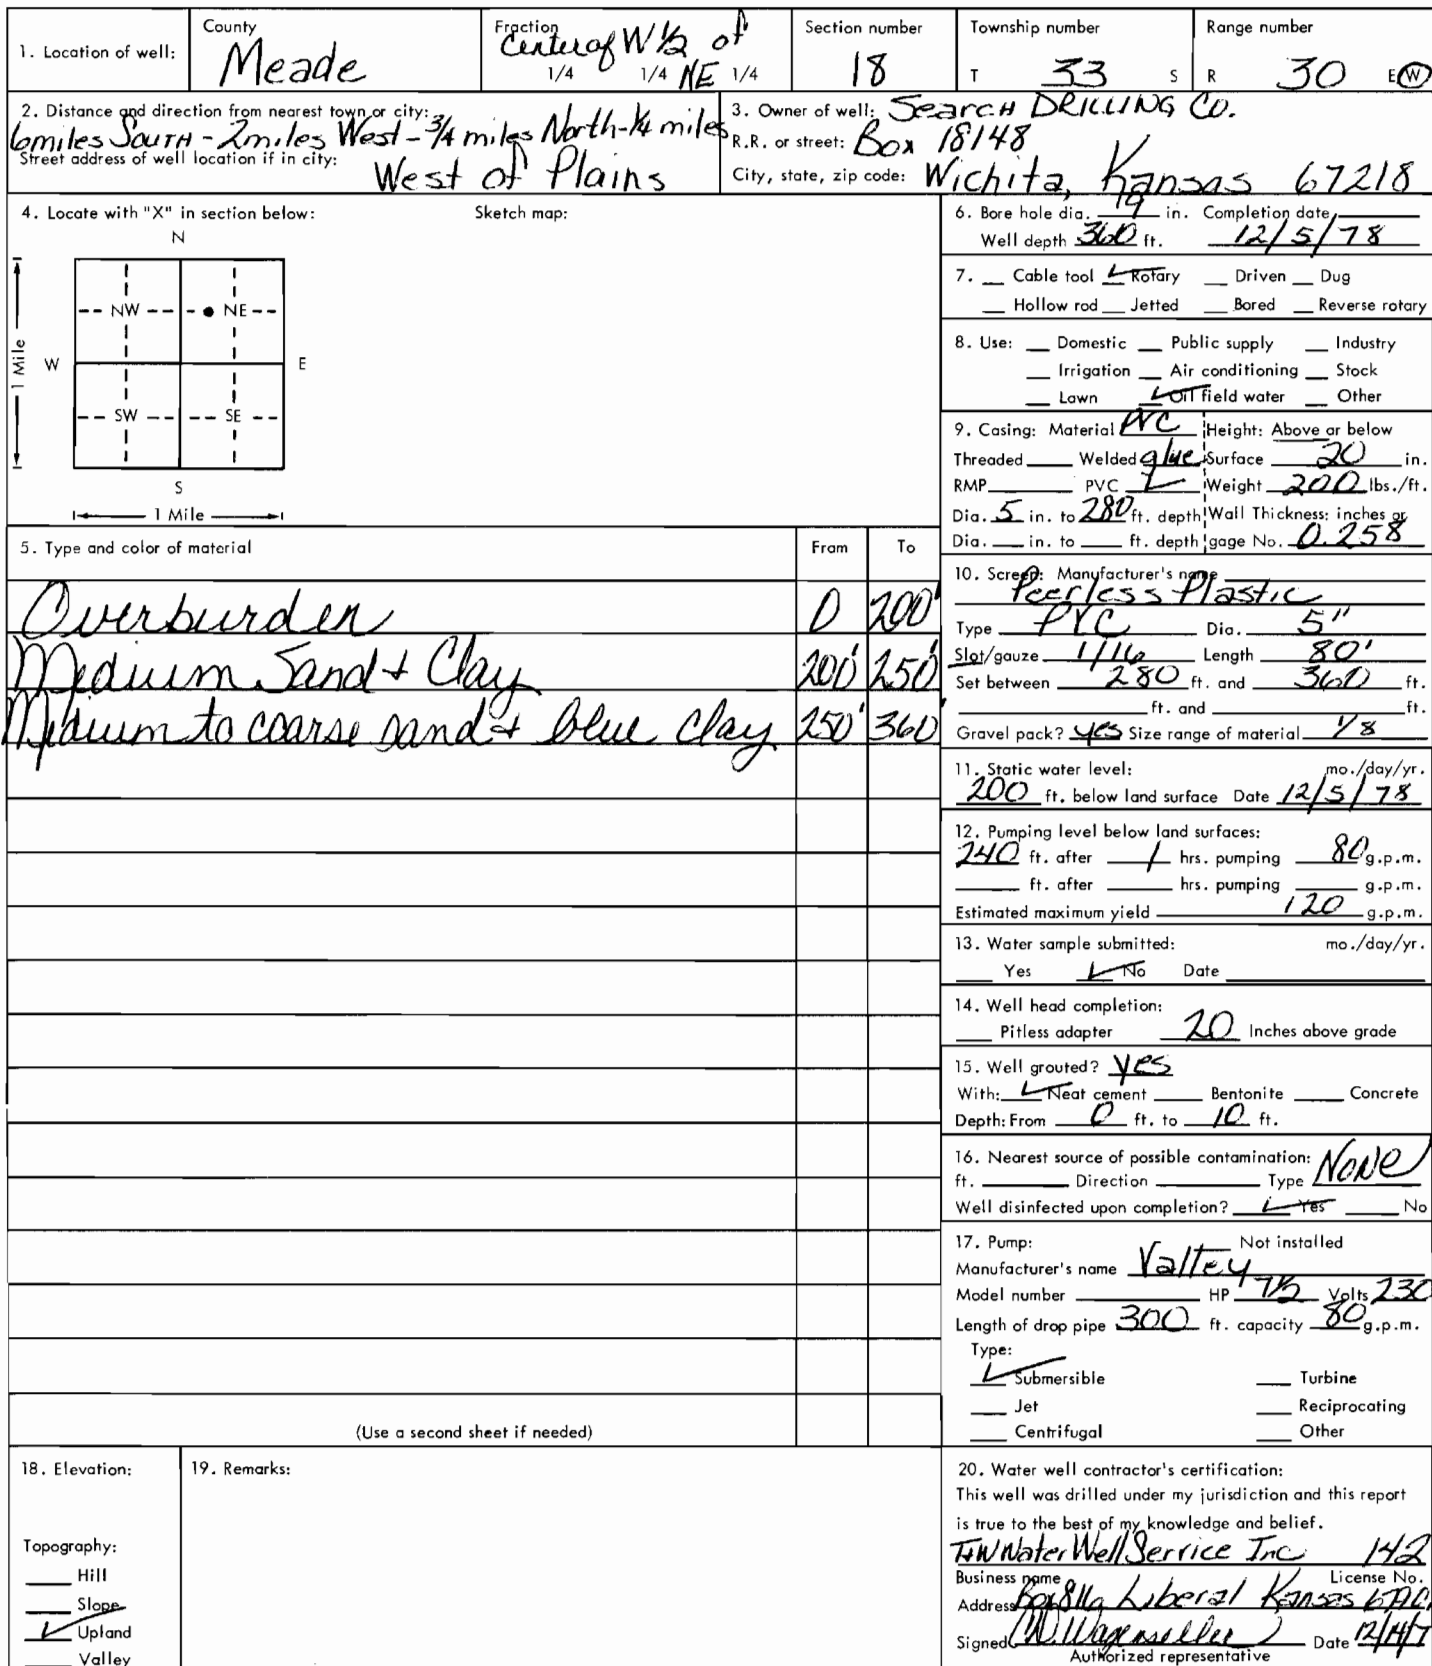 1. Location of well:
County
Meade
Fraction
Center of W 1/2 of
1/4 1/4 NE 1/4
Section number
18
Township number
T 33 S
Range number
R 30 E W
2. Distance and direction from nearest town or city:
6 miles South - 2 miles West - 3/4 miles North - 1/4 miles
Street address of well location if in city:
West of Plains
3. Owner of well: Search DRILLING Co.
R.R. or street: Box 18148
City, state, zip code: Wichita, Kansas 67218
4. Locate with "X" in section below:
Sketch map:
N
NW NE
W E
1 Mile
SW SE
S
1 Mile
5. Type and color of material From To
Overburden 0 200'
Medium Sand + Clay 200' 250'
Medium to coarse sand + blue clay 250' 360'
(Use a second sheet if needed)
6. Bore hole dia. in. Completion date
Well depth 360 ft. 12/5/78
7. Cable tool ✓ Rotary Driven Dug
Hollow rod Jetted Bored Reverse rotary
8. Use: Domestic Public supply Industry
Irrigation Air conditioning Stock
Lawn ✓ Oil field water Other
9. Casing: Material PVC Height: Above or below
Threaded Welded glue Surface 20 in.
RMP PVC ✓ Weight 200 lbs./ft.
Dia. 5 in. to 280 ft. depth Wall Thickness: inches or
Dia. in. to ft. depth gage No. 0.258
10. Screen: Manufacturer's name
Peerless Plastic
Type PVC Dia. 5"
Slot/gauze 1/16 Length 80'
Set between 280 ft. and 360 ft.
ft. and ft.
Gravel pack? yes Size range of material 1/8
11. Static water level: mo./day/yr.
200 ft. below land surface Date 12/5/78
12. Pumping level below land surfaces:
240 ft. after 1 hrs. pumping 80 g.p.m.
ft. after hrs. pumping g.p.m.
Estimated maximum yield 120 g.p.m.
13. Water sample submitted: mo./day/yr.
Yes ✓ No Date
14. Well head completion:
Pitless adapter 20 Inches above grade
15. Well grouted? yes
With: ✓ Neat cement Bentonite Concrete
Depth: From 0 ft. to 10 ft.
16. Nearest source of possible contamination:
ft. Direction Type None
Well disinfected upon completion? ✓ Yes No
17. Pump: Not installed
Manufacturer's name Valley
Model number HP 7 1/2 Volts 230
Length of drop pipe 300 ft. capacity 80 g.p.m.
Type:
✓ Submersible Turbine
Jet Reciprocating
Centrifugal Other
18. Elevation:
Topography:
Hill
Slope
✓ Upland
Valley
19. Remarks:
20. Water well contractor's certification:
This well was drilled under my jurisdiction and this report
is true to the best of my knowledge and belief.
Water Well Service Inc 142
Business name License No.
Address Liberal Kansas
Signed Wagenseller Date
Authorized representative